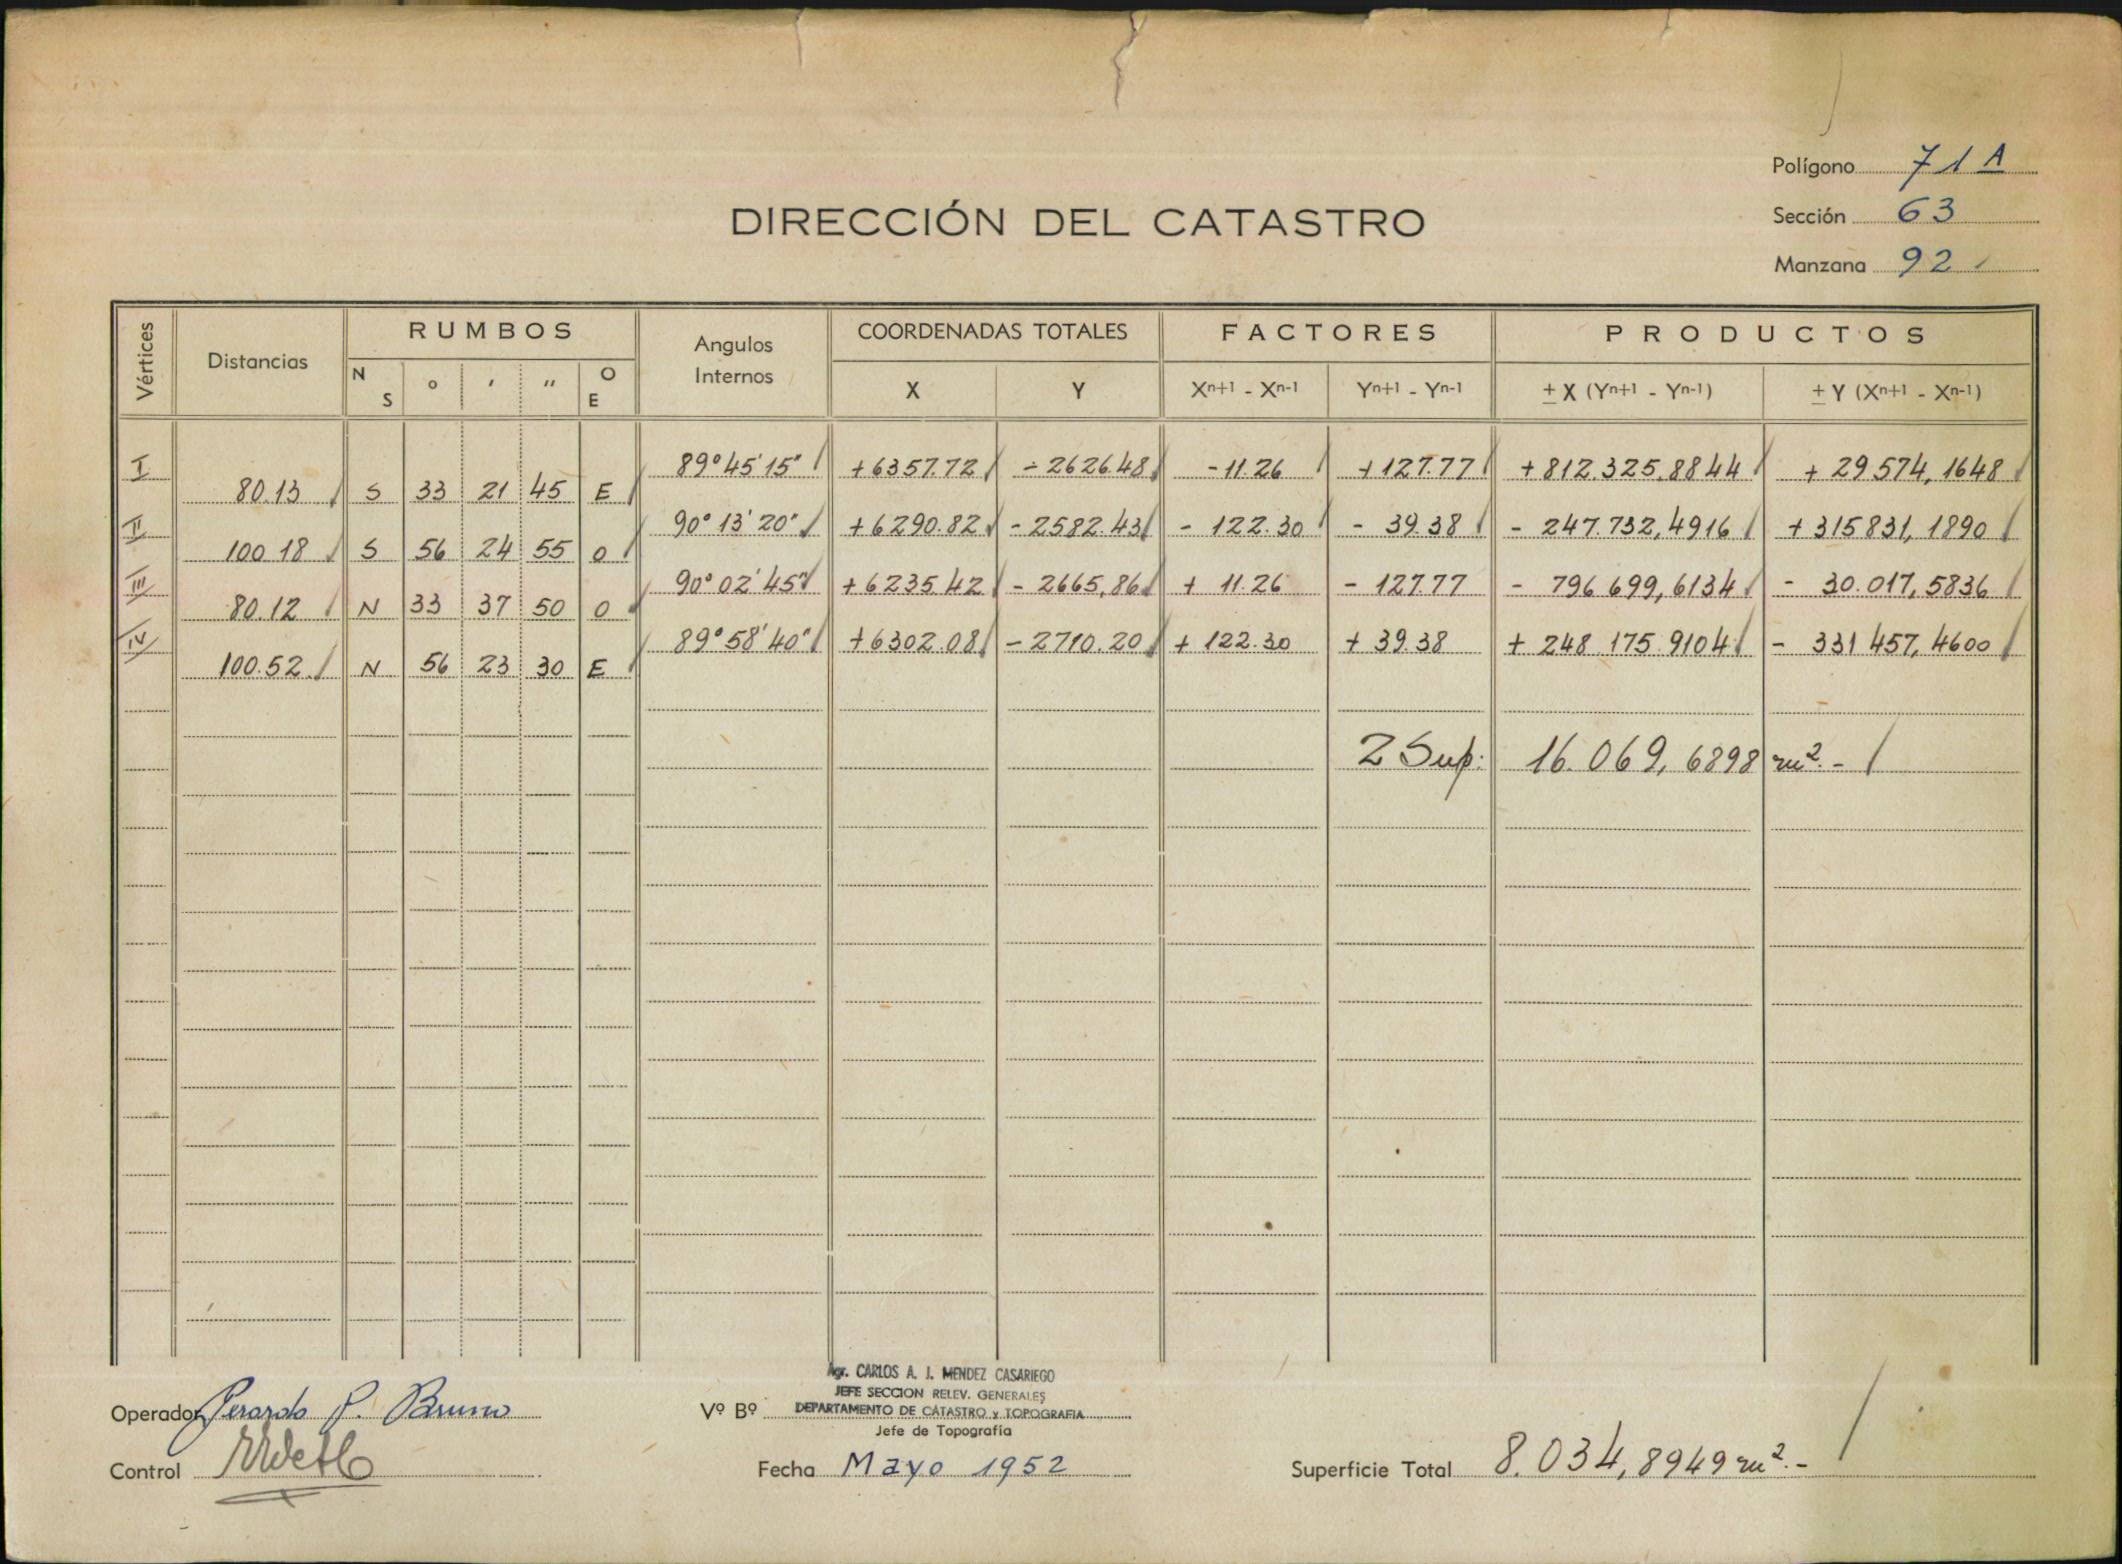 Polígono 71 A
DIRECCIÓN DEL CATASTRO
Sección 63
Manzana 92
Vértices Distancias RUMBOS Angulos Internos COORDENADAS TOTALES FACTORES PRODUCTOS
N S ° ' " O E X Y Xn+1 - Xn-1 Yn+1 - Yn-1 ± X (Yn+1 - Yn-1) ± Y (Xn+1 - Xn-1)
I 89°45'15" +6357.72 -2626.48 -11.26 +127.77 +812.325.8844 + 29574,1648
80.13 S 33 21 45 E
II 90° 13' 20" +6290.82 -2582.43 - 122.30 - 39.38 - 247.732,4916 +315831,1890
100.18 S 56 24 55 O
III 90° 02' 45" +6235.42 - 2665,86 + 11.26 - 127.77 - 796 699,6134 - 30.017,5836
80.12 N 33 37 50 O
IV 89° 58' 40" +6302.08 - 2710.20 + 122.30 + 39.38 + 248 175.9104 - 331 457,4600
100.52 N 56 23 30 E
2 Sup: 16.069,6898 m².-
Agr. CARLOS A. J. MENDEZ CASARIEGO
JEFE SECCION RELEV. GENERALES
Operador Gerardo P. Bruno Vº Bº DEPARTAMENTO DE CATASTRO y TOPOGRAFIA
Jefe de Topografía
Control Fecha Mayo 1952 Superficie Total 8.034,8949 m².-